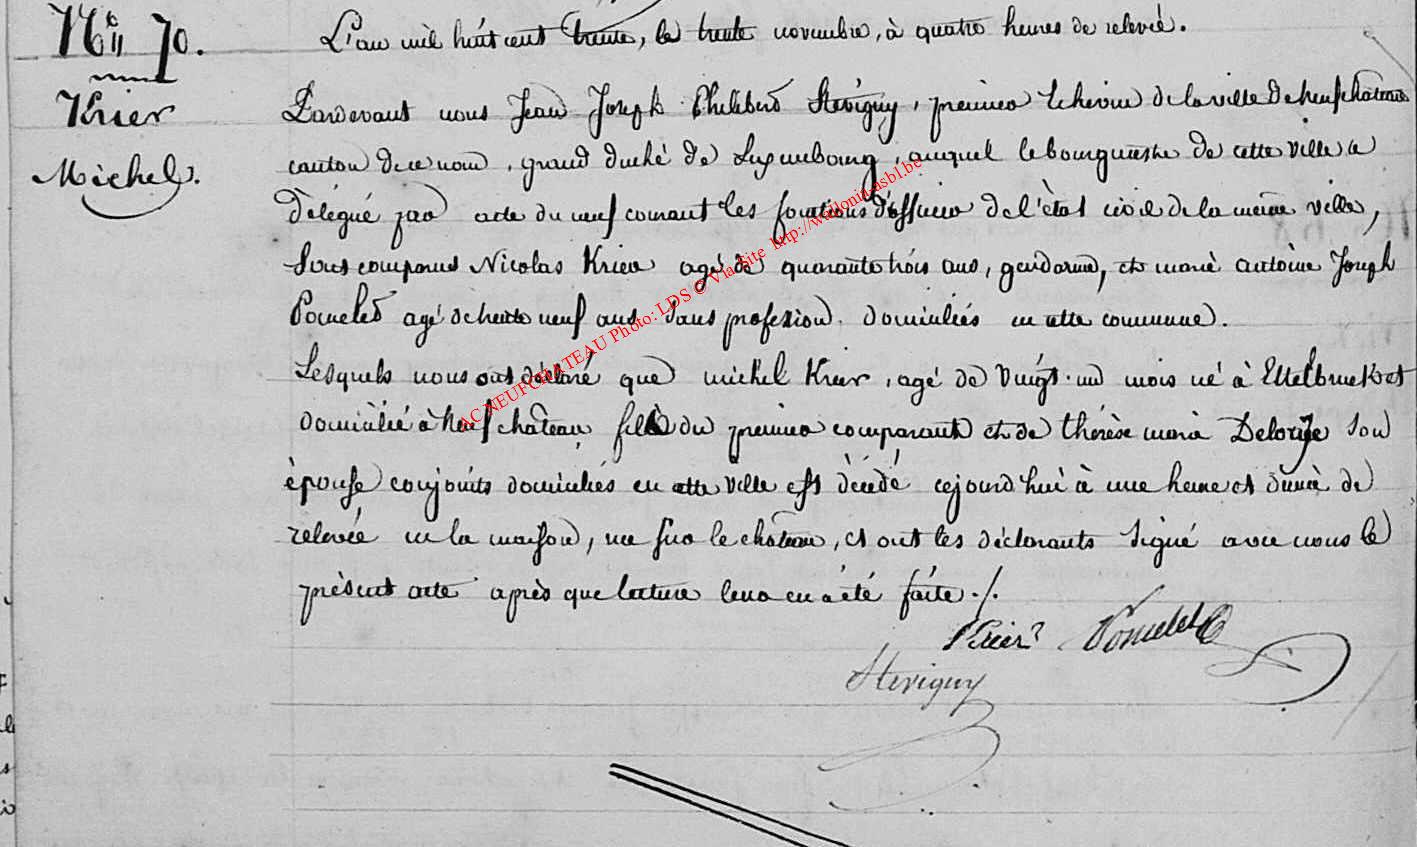 N° 70.
Krier
Michel.
L'an mil huit cent trente, le trente novembre, à quatre heures de relevée.
Pardevant nous Jean Joseph Philibert Stevigny, premier Echevin de la ville de neufchateau
canton de ce nom, grand duché de Luxembourg, auquel le bourgmestre de cette ville a
délégué par acte du neuf courant les fonctions d'officier de l'état civil de la même ville,
Sont comparus Nicolas Krier agé de quarante trois ans, gendarme, et marie antoine Joseph
Poncelet agé de trente neuf ans Sans profession. domiciliés en cette commune.
Lesquels nous ont déclaré que michel Krier, agé de Vingt-un mois né à Ettelbruck et
domicilié à Neufchâteau, fils du premier comparant et de thérèse marie Delorge Son
épouse conjoints domiciliés en cette Ville est décédé cejourd'hui à une heure et dimie de
relevée en la maison, rue sur le château, et ont les déclarants Signé avec nous le
présent acte après que lecture leur en a été faite ./.
Krier Poncelet
Stevigny
AC NEUFCHATEAU Photo: LDS © Via Site http://walloniasbl.be